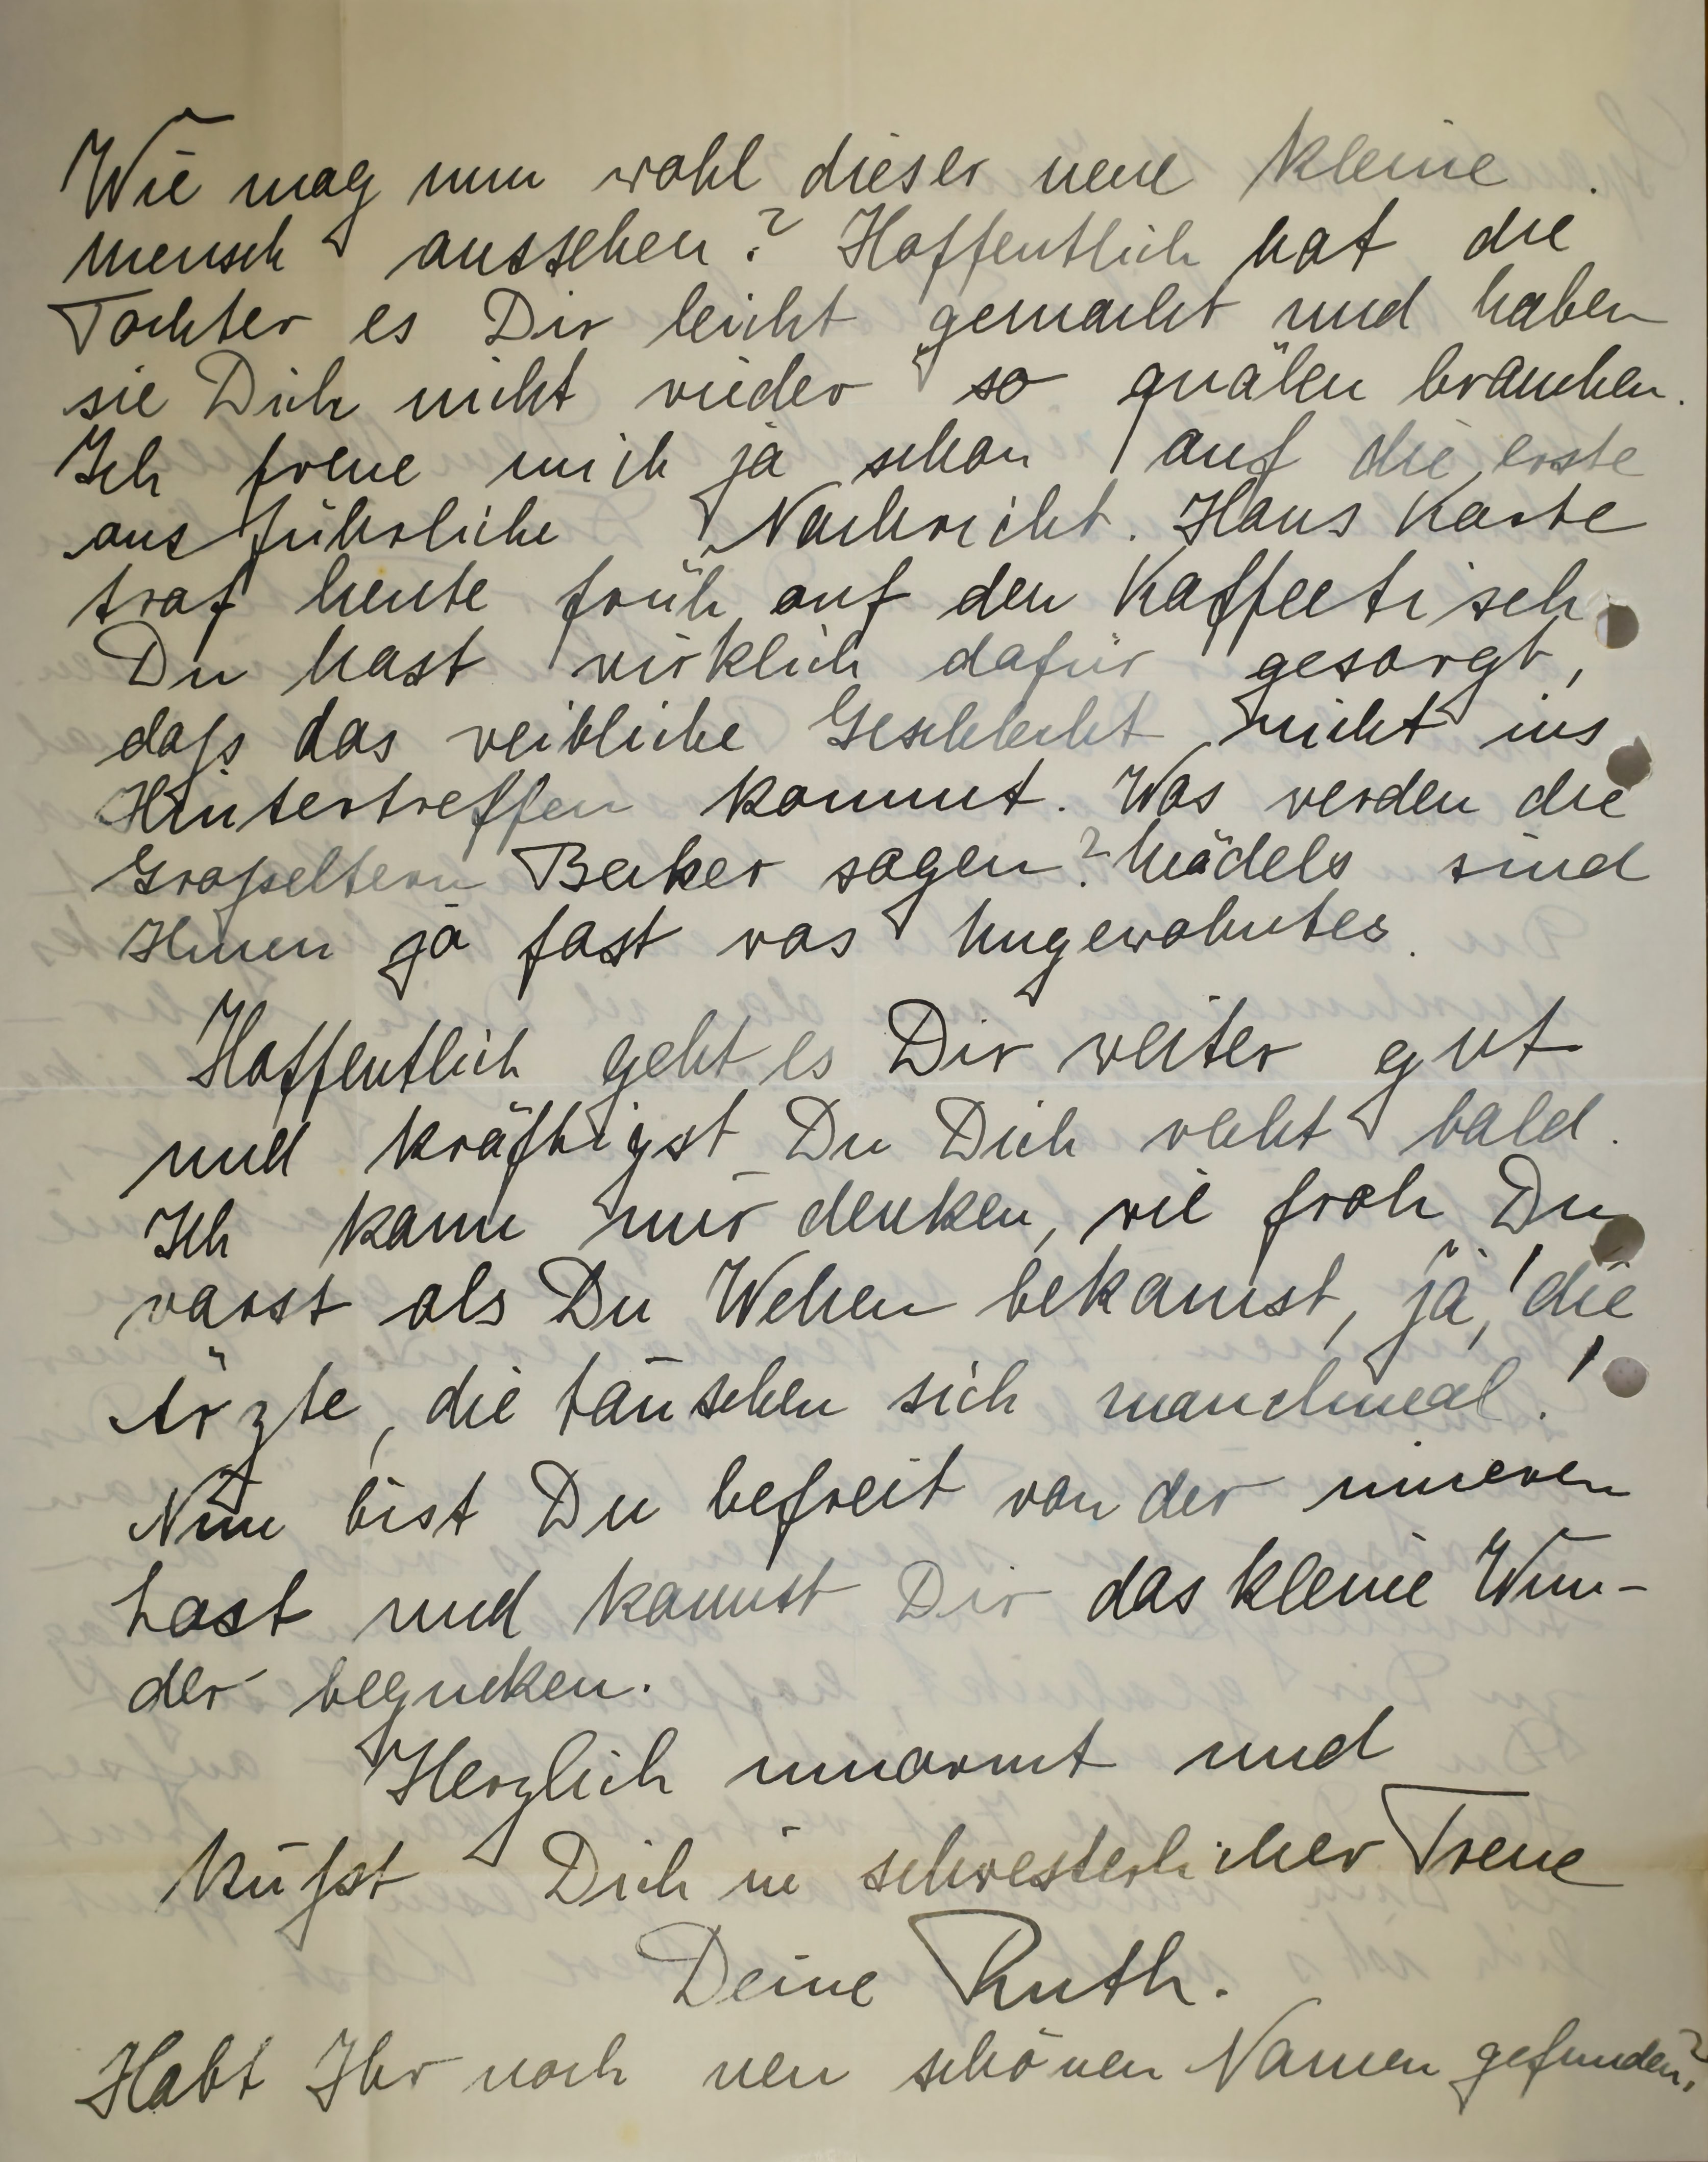 Wie mag nun wohl dieser neue kleine
Mensch aussehen? Hoffentlich hat die
Tochter es Dir leicht gemacht und haben
sie Dich nicht wieder so quälen brauchen.
Ich freue mich ja schon auf die erste
ausführliche Nachricht. Hans Karte
traf heute früh auf den Kaffeetisch
Du hast wirklich dafür gesorgt,
daß das weibliche Geschlecht nicht ins
Hintertreffen kommt. Was werden die
Großeltern Becker sagen? Mädels sind
Ihnen ja fast was Ungewohntes.
Hoffentlich geht es Dir weiter gut
und kräftigst Du Dich recht bald.
Ich kann mir denken, wie froh Du
warst als Du Wehen bekamst, ja, die
Ärzte, die täuschen sich manchmal!
Nun bist Du befreit von der inneren
Last und kannst Dir das kleine Wun-
der begucken.
Herzlich umarmt und
küßst Dich in schwesterlicher Treue
Deine Ruth.
Habt Ihr noch nen schönen Namen gefunden?